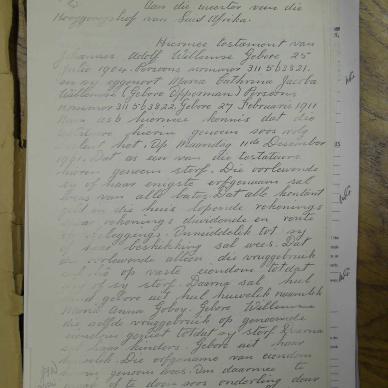 Aan die meester van die
Hooggeregshof van Suid Afrika.
Hiermee testament van
Johannes Adolf Willemse Gebore 25
Julie 1904. Persoons nommer 311563821.
en sy eggenoot Maria Cathrina Jacoba
Willemse (Gebore Opperman) Persoons
nommer 311563822. Gebore 27 Februarie 1911
Neem asb hiermee kennis dat die
hierin genoem soos volg
het. Op Maandag 11de Desember
1971. Dat as een van die testateurs
hierin genoem sterf. Die oorlewende
sy of haar enigste erfgenaam sal
wees van alle bates. Dat alle kontant
in die huis lopende rekenings
rekenings dividende en rente
Onmiddelik tot sy
beskikking sal wees. Dat
oorlewende alleen die vruggebruik
op vaste eiendom totdat
of sy sterf. Daarna sal hul
gebore uit hul huwelik naamlik
Maria Anna Goboy. Gebore Willemse
die selfde vruggebruik op genoemde
eiendom geniet totdat sy sterf. Daarna
kinders. Gebore uit haar
Die erfgename van eiendom
genoem wees. Om daarmee te
te doen soos onderling deur